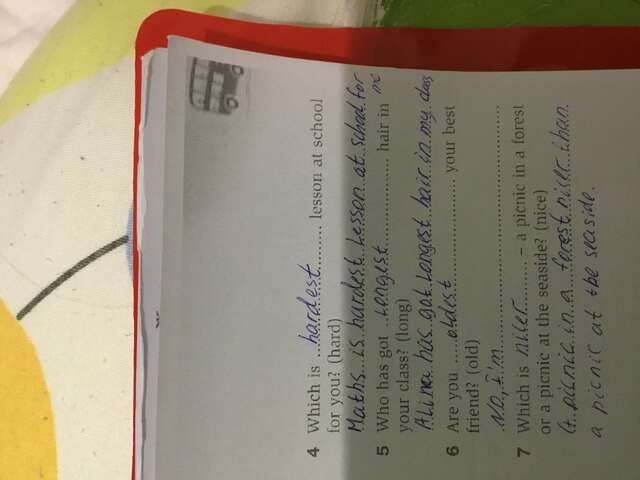 4 Which is ...hardest............ lesson at school
for you? (hard)
Maths is hardest lesson at school for
me
5 Who has got ..longest.................. hair in
your class? (long)
Alina has got longest hair in my class
6 Are you .....oldest........................ your best
friend? (old)
No, I'm
7 Which is nicer........... – a picnic in a forest
or a picnic at the seaside? (nice)
A picnic in a forest nicer than
a picnic at the seaside.